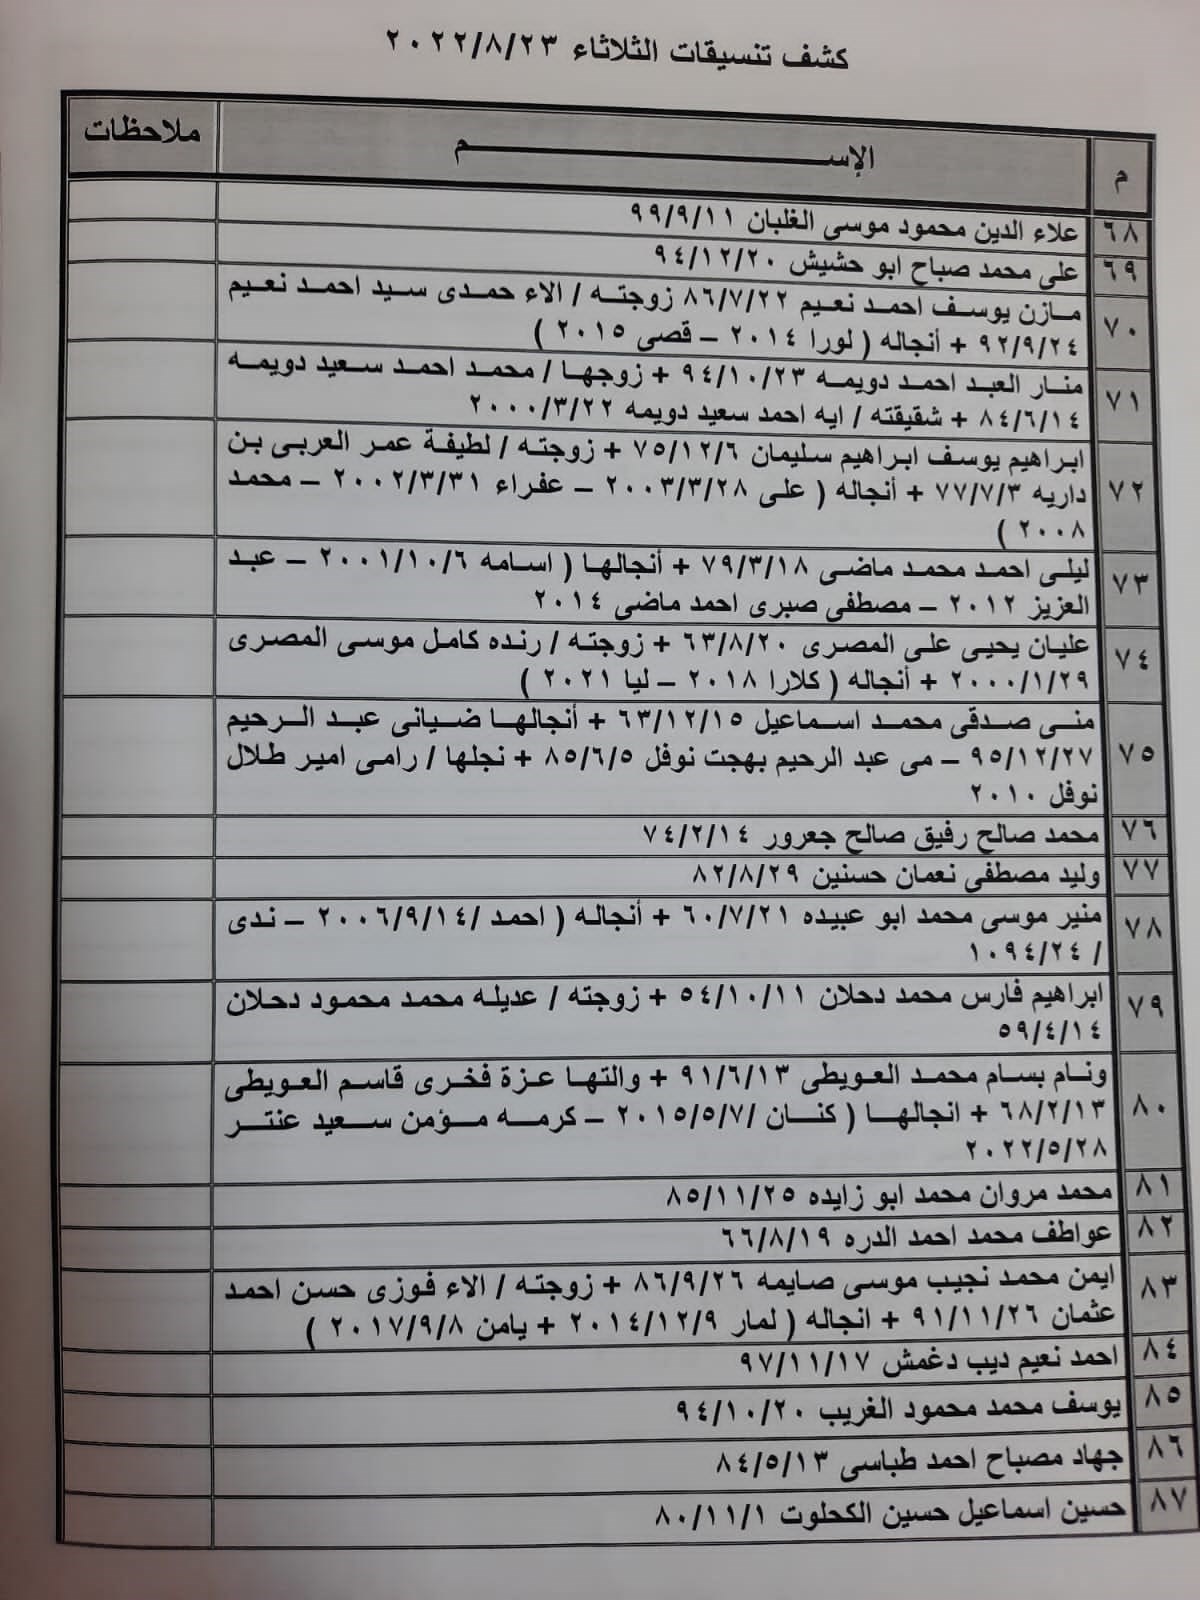 كشف تنسيقات الثلاثاء ٢٠٢٢/٨/٢٣
م الإســـــم ملاحظات
٦٨ علاء الدين محمود موسى الغلبان ٩٩/٩/١١
٦٩ على محمد صباح ابو حشيش ٩٤/١٢/٢٠
٧٠ مازن يوسف احمد نعيم ٨٦/٧/٢٢ زوجته / الاء حمدى سيد احمد نعيم
٩٢/٩/٢٤ + أنجاله ( لورا ٢٠١٤ – قصى ٢٠١٥ )
٧١ منار العبد احمد دويمه ٩٤/١٠/٢٣ + زوجها / محمد احمد سعيد دويمه
٨٤/٦/١٤ + شقيقته / ايه احمد سعيد دويمه ٢٠٠٠/٣/٢٢
٧٢ ابراهيم يوسف ابراهيم سليمان ٧٥/١٢/٦ + زوجته / لطيفة عمر العربى بن
داريه ٧٧/٧/٣ + أنجاله ( على ٢٠٠٣/٣/٢٨ – عفراء ٢٠٠٢/٣/٣١ – محمد
٢٠٠٨ )
٧٣ ليلى احمد محمد ماضى ٧٩/٣/١٨ + أنجالها ( اسامه ٢٠٠١/١٠/٦ – عبد
العزيز ٢٠١٢ – مصطفى صبرى احمد ماضى ٢٠١٤
٧٤ عليان يحيى على المصرى ٦٣/٨/٢٠ + زوجته / رنده كامل موسى المصرى
٢٠٠٠/١/٢٩ + أنجاله ( كلارا ٢٠١٨ – ليا ٢٠٢١ )
٧٥ منى صدقى محمد اسماعيل ٦٣/١٢/١٥ + أنجالها ضيانى عبد الرحيم
٩٥/١٢/٢٧ – مى عبد الرحيم بهجت نوفل ٨٥/٦/٥ + نجلها / رامى امير طلال
نوفل ٢٠١٠
٧٦ محمد صالح رفيق صالح جعرور ٧٤/٢/١٤
٧٧ وليد مصطفى نعمان حسنين ٨٢/٨/٢٩
٧٨ منير موسى محمد ابو عبيده ٦٠/٧/٢١ + أنجاله ( احمد /٢٠٠٦/٩/١٤ – ندى
/ ١٠٩٤/٢٤
٧٩ ابراهيم فارس محمد دحلان ٥٤/١٠/١١ + زوجته / عديله محمد محمود دحلان
٥٩/٤/١٤
٨٠ ونام بسام محمد العويطى ٩١/٦/١٣ + والتها عزة فخرى قاسم العويطى
٦٨/٢/١٣ + انجالها ( كنان /٢٠١٥/٥/٧ – كرمه مؤمن سعيد عنتر
٢٠٢٢/٥/٢٨
٨١ محمد مروان محمد ابو زايده ٨٥/١١/٢٥
٨٢ عواطف محمد احمد الدره ٦٦/٨/١٩
٨٣ ايمن محمد نجيب موسى صايمه ٨٦/٩/٢٦ + زوجته / الاء فوزى حسن احمد
عثمان ٩١/١١/٢٦ + انجاله ( لمار ٢٠١٤/١٢/٩ + يامن ٢٠١٧/٩/٨ )
٨٤ احمد نعيم ديب دغمش ٩٧/١١/١٧
٨٥ يوسف محمد محمود الغريب ٩٤/١٠/٢٠
٨٦ جهاد مصباح احمد طباسى ٨٤/٥/١٣
٨٧ حسين اسماعيل حسين الكحلوت ٨٠/١١/١